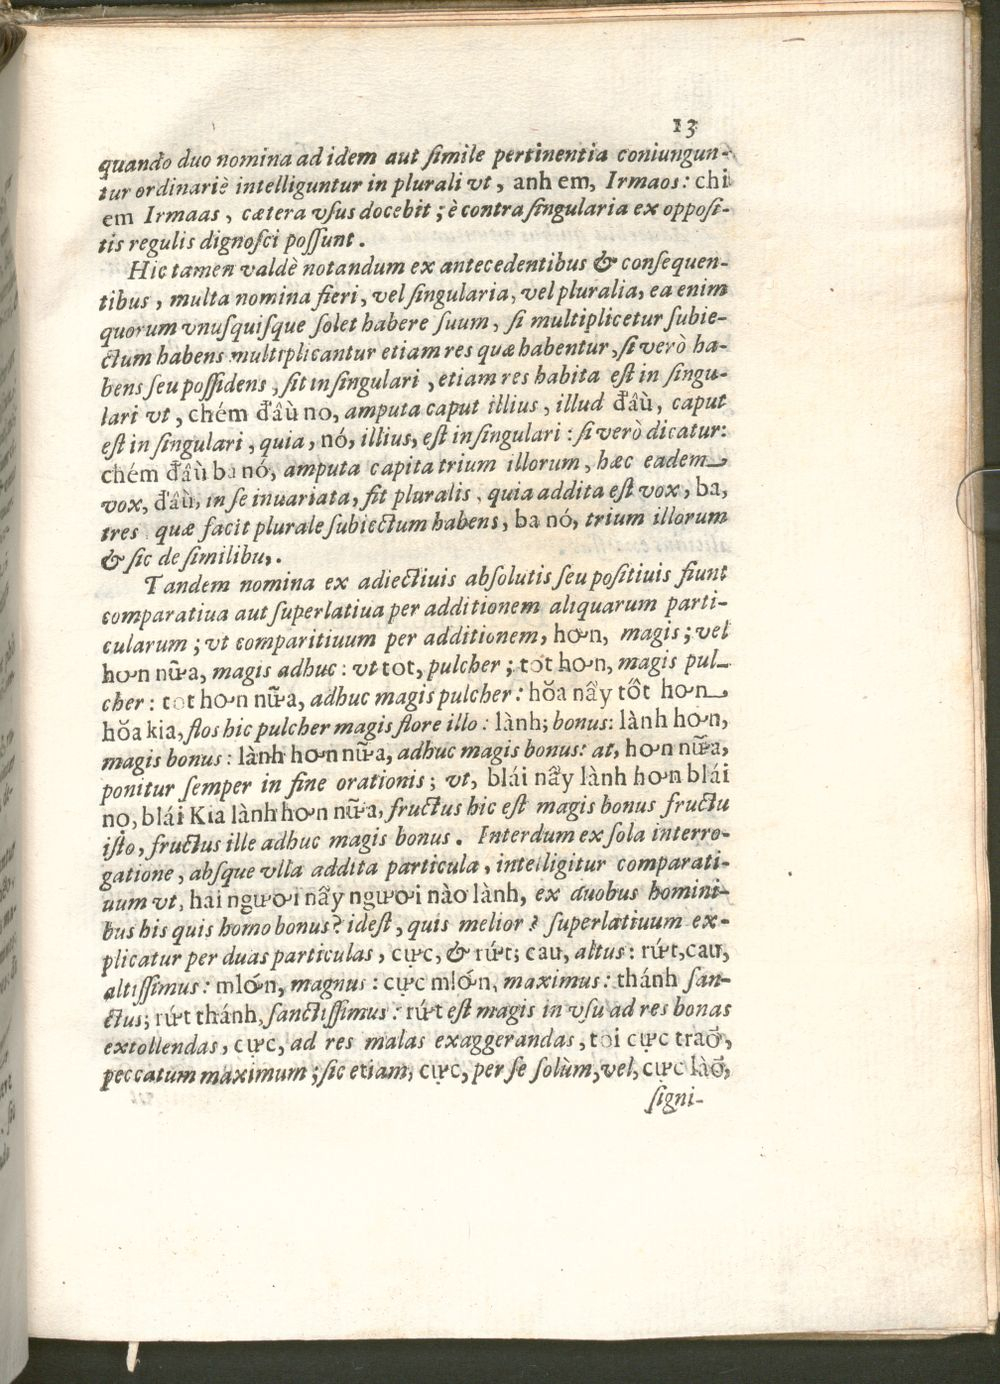 13
quando duo nomina ad idem aut ſimile pertinentia coniungun-
tur ordinariè intelliguntur in plurali vt, anh em, Irmaos: chi
em Irmaas, cætera vſus docebit; è contra ſingularia ex oppoſi-
tis regulis dignoſci poſſunt.
Hic tamen valdè notandum ex antecedentibus & conſequen-
tibus, multa nomina fieri, vel ſingularia, vel pluralia, ea enim
quorum vnuſquiſque ſolet habere ſuum, ſi multiplicetur ſubie-
ctum habens multiplicantur etiam res quæ habentur, ſi verò ha-
bens ſeu poſſidens, ſit in ſingulari, etiam res habita eſt in ſingu-
lari vt, chém đâù no, amputa caput illius, illud đâù, caput
eſt in ſingulari, quia, nó, illius, eſt in ſingulari: ſi verò dicatur:
chém đâù ba nó, amputa capita trium illorum, hæc eadem
vox, đâù, in ſe inuariata, fit pluralis, quia addita eſt vox, ba,
tres quæ facit plurale ſubiectum habens, ba nó, trium illorum
& ſic de ſimilibus.
Tandem nomina ex adiectiuis abſolutis ſeu poſitiuis fiunt
comparatiua aut ſuperlatiua per additionem aliquarum parti-
cularum; vt comparitiuum per additionem, hơn, magis; vel
hơn nữa, magis adhuc: vt tot, pulcher; tot hơn, magis pul-
cher: tot hơn nữa, adhuc magis pulcher: hŏa nẫy tốt hơn
hŏa kia, flos hic pulcher magis flore illo: lành; bonus: lành hơn,
magis bonus: lành hơn nữa, adhuc magis bonus: at, hơn nữa,
ponitur ſemper in fine orationis; vt, blái nẫy lành hơn blái
nọ, blái Kia lành hơn nữa, fructus hic eſt magis bonus fructu
iſto, fructus ille adhuc magis bonus. Interdum ex ſola interro-
gatione, abſque vlla addita particula, intelligitur comparati-
uum vt, hai ngươi nẫy ngươi nào lành, ex duobus homini-
bus his quis homo bonus? ideſt, quis melior? ſuperlatiuum ex-
plicatur per duas particulas, cực, & rứt; cau, altus: rứt, cau,
altiſſimus: mlớn, magnus: cực mlớn, maximus: thánh ſan-
ctus; rứt thánh, ſanctiſſimus: rứt eſt magis in vſu ad res bonas
extollendas, cực, ad res malas exaggerandas, toi cực traõ,
peccatum maximum; ſic etiam, cực, per ſe ſolùm, vel, cực làõ,
ſigni-